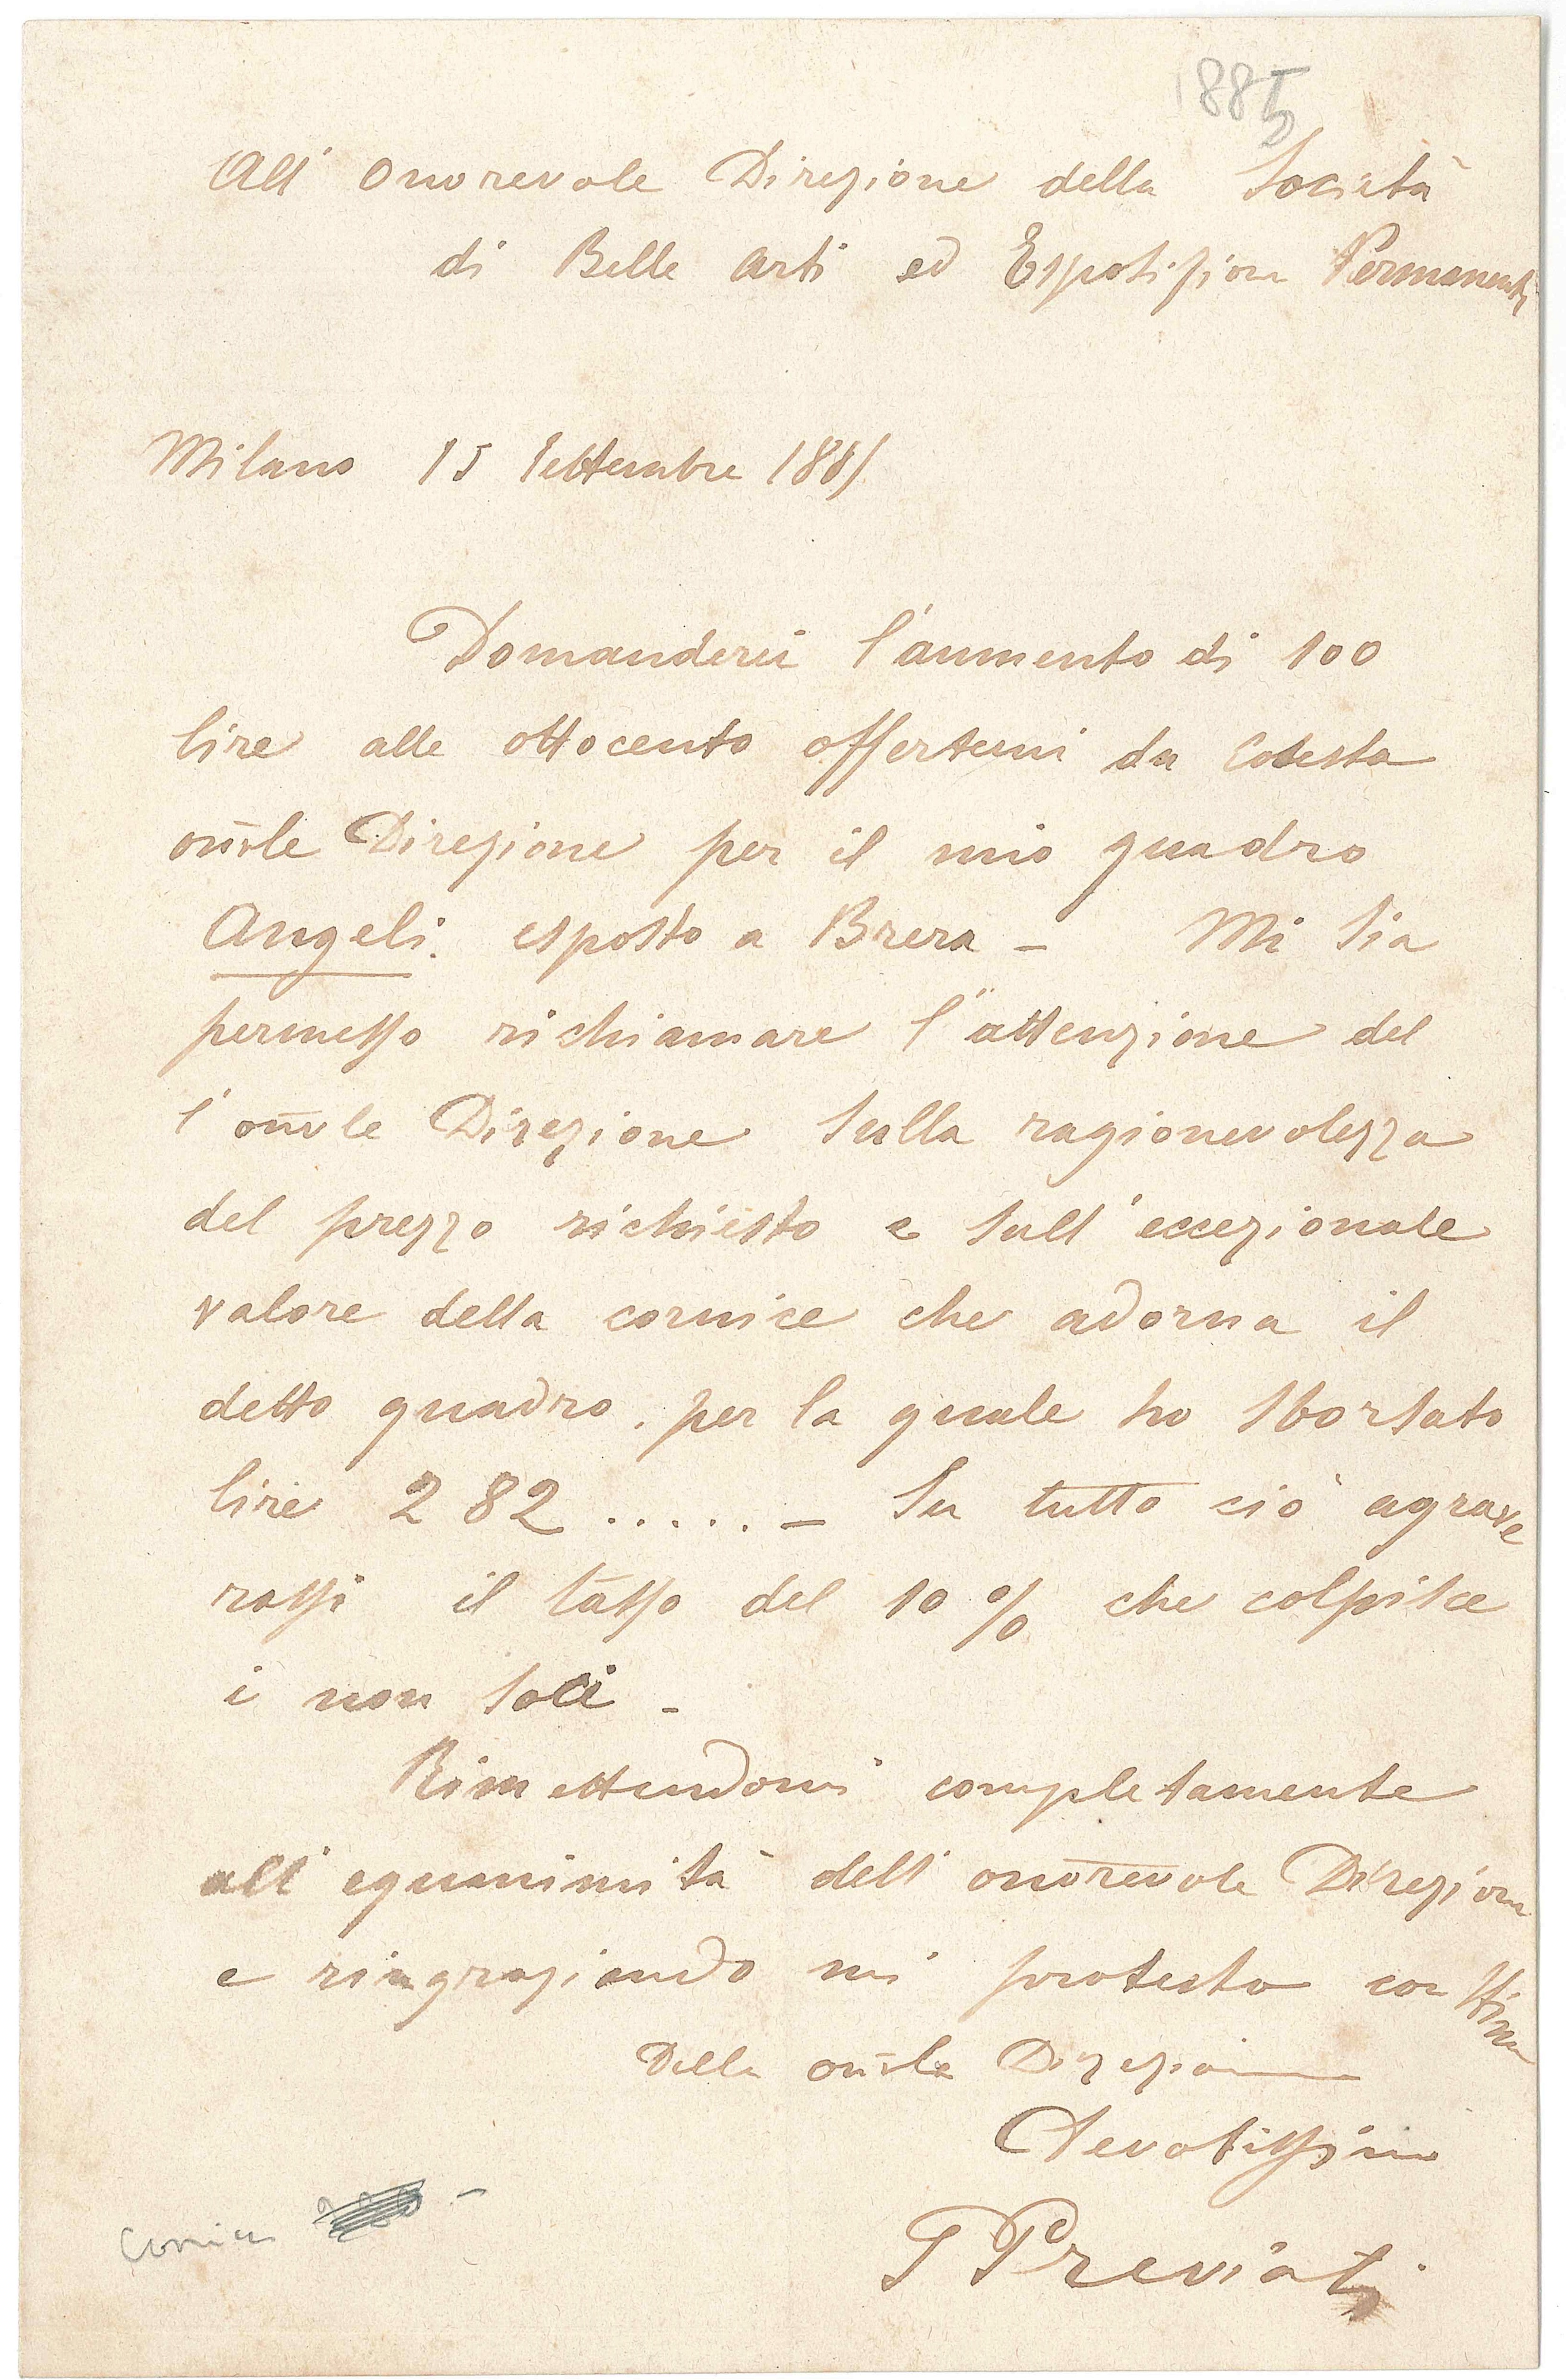 1885
All' Onorevole Direzione della Società
di Belle Arti ed Esposizione Permanente
Milano 15 Settembre 1885
Domanderei l'aumento di 100
lire alle ottocento offertemi da Codesta
onvle Direzione per il mio quadro
Angeli. esposto a Brera – Mi sia
permesso richiamare l'attenzione del
l'onvle Direzione sulla ragionevolezza
del prezzo richiesto e sull'eccezionale
valore della cornice che adorna il
detto quadro. per la quale ho sborsato
lire 282 ..... – Su tutto ciò agrave
rassi il tasso del 10% che colpisce
i non soci –
Rimettendomi completamente
all'equanimità dell'onorevole Direzione
e ringraziando mi protesto con stima
Della onvle Direzione
Devotissimo
G Previati
Cornice